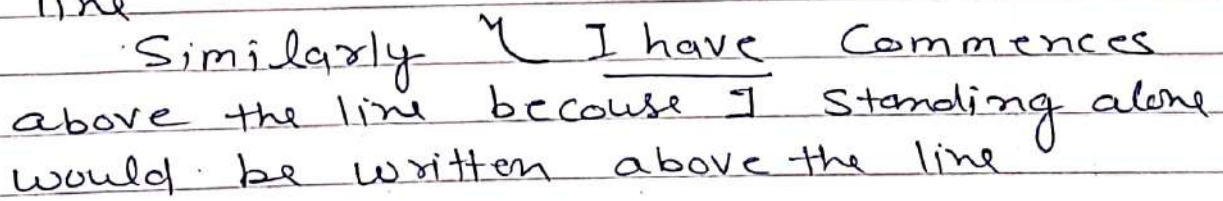 line
Similarly I have Commences
above the line becouse I standing alone
would be written above the line